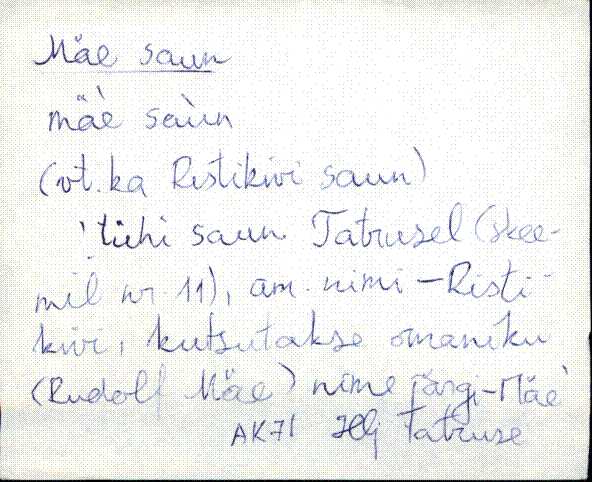 Mäe saun
mäè saùn
(vt. ka Ristikivi saun)
tühi saun Tatrusel (skee-
mil nr. 11), am. nimi - Risti-
kivi, kutsutakse omaniku
(Rudolf Mäe) nime järgi - Mäè
AK71 Hlj Tatruse